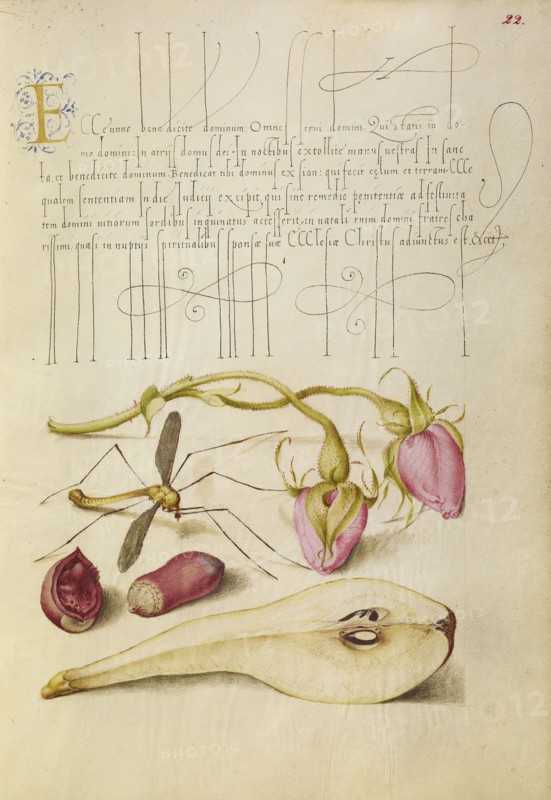 22.
Ecce nunc benedicite dominum: Omnes serui domini. Qui statis in do
mo domini: In atrijs domus dei: In noctibus extollite manus uestras In sanc
ta: et benedicite dominum. Benedicat tibi dominus ex sion: qui fecit cęlum et terram. Ille
qualem sententiam In die Iudicij excipit, qui sine remedio penitentiæ ad festiuita
tem domini uitiorum sordibus inquinatus accesserit, in natali enim domini fratres cha
rissimi, quasi in nuptijs spiritualibus sponsæ suæ Ecclesiæ Christus adiunctus est,
PHOTO12